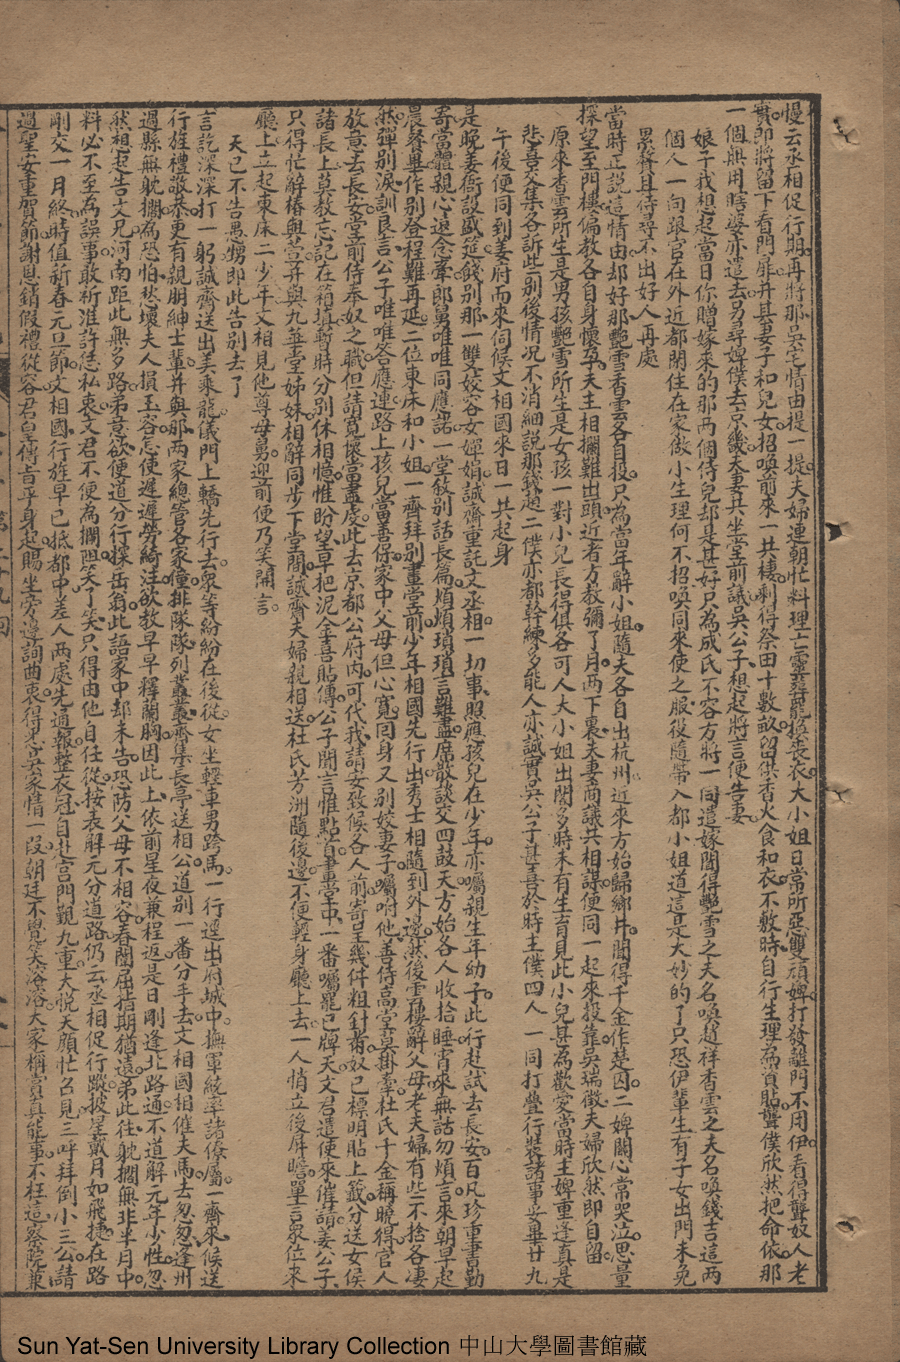 慢云丞相促行期再將那吳宅情由提一提夫婦連朝忙料理亡靈葬罷換喪衣大小姐日常所惡雙頑婢打發離門不用伊看得聾奴人老
實即將留下看門扉并其妻子和兒女招喚前來一共棲剩得祭田十數畝留供香火食和衣不敷時自行生理為資貼聾僕欣然把命依那
一個無用瞎婆亦遣去另尋婢僕去京畿夫妻共坐堂前議吳公子想起將言便告妻
娘子我想起當日你贈嫁來的那兩個侍兒却是甚好只為成氏不容方將一同遣嫁聞得艷雪之夫名喚趙祥香雲之夫名喚錢吉這兩
個人一向跟官在外近都閒住在家做小生理何不招喚同來使之服役隨帶入都小姐道這是大妙的了只恐伊輩生有子女出門未免
累贅耳侍尋不出好人再處
當時正說這情由却好那艷雪香雲各自投只為當年辭小姐隨夫各自出杭州近來方始歸鄉井聞得千金作楚囚二婢關心常哭泣思量
探望至門樓偏教各自身懷孕夫主相攔難出頭近者方教彌了月兩下裏夫妻商議共相謀便同一起來投靠吳瑞徵夫婦欣然即自留
原來香雲所生是男孩艷雪所生是女孩一對小兒長得俱各可人大小姐出閣多時未有生育見此小兒甚為歡愛當時主婢重逢真是
悲喜交集各訴些別後情況不消細說那錢趙二僕亦都幹練多能人亦誠實吳公子甚喜於時主僕四人一同打疊行裝諸事妥畢廿九
午後便同到姜府而來伺候文相國來日一共起身
是晚姜衙設盛筵餞別那一雙姣客女嬋娟誠齋重託文丞相一切事照應孩兒在少年亦囑親生年幼子此行赴試去長安百凡珍重書勤
寄當體親心遠念牽郎舅唯唯同應諾一堂敘別話長篇煩煩瑣瑣言難盡席散談交四鼓天方始各人收拾睡宵來無話勿煩言來朝早起
晨餐畢作別登程難再延二位東床和小姐一齊拜別畫堂前少年相國先行出秀士相隨到外邊然後雲樓辭父母老夫婦有些不捨各凄
然彈別淚訓良言公子唯唯答應連路上孩兒當善保家中父母但心寬回身又別姣妻子囑咐他善侍高堂莫掛牽杜氏千金稱曉得官人
放意去長安堂前侍奉奴之職但請寬懷當盡虔此去京都公府內可代我請安致候各人前寄呈幾件粗針黹奴已標明貼上籤分送女侯
諸長上莫教忘記在箱填暫時分別休相憶惟盼望早把泥金喜貼傳公子聞言惟點首畫堂中一番囑罷已牌天文君遣使來催請姜公子
只得忙辭椿與萱并與九華堂姊妹相辭同步下堂間誠齋夫婦親相送杜氏芳洲隨後邊不便輕身廳上去一人悄立後屏瞻單言眾位來
廳上立起東床二少年文相見他尊母舅迎前便乃笑開言
天已不告愚甥即此告別去了
言訖深深打一躬誠齋送出美乘龍儀門上轎先行去眾等紛紛在後從女坐輕車男跨馬一行邐出府城中撫軍統率諸僚屬一齊來候送
行旌禮敬恭更有親朋紳士輩并與那兩家總管各家僮排隊隊列叢叢齊集長亭送相公道別一番分手去文相國相催夫馬去忽忽逢州
過縣無躭擱為恐怕愁壞夫人損玉容怎使遲遲勞綺注欲教早早釋蘭胸因此上依前星夜兼程返是日剛逢北路通不道解元年少性忽
然想起告文兄河南距此無多路弟意欲便道分行探岳翁此語家中却未告恐防父母不相容春闈屈指期猶遠弟此往躭擱無非半月中
料必不至為誤事敢祈准許恁私衷文君不便為攔阻笑了笑只得由他自任從按表解元分道路仍云丞相促行蹤披星戴月如飛捷在路
剛交一月終時值新春元旦節文相國行旌早已抵都中差人兩處先通報整衣冠自赴宮門覲九重大悅天顏忙召見三呼拜倒小三公請
過聖安重賀節謝恩銷假禮從容君皇傳旨平身起賜坐旁邊詢曲衷得悉吳家情一段朝廷不覺笑溶溶大家稱賞真能事不枉這察院兼
Sun Yat-Sen University Library Collection 中山大學圖書館藏